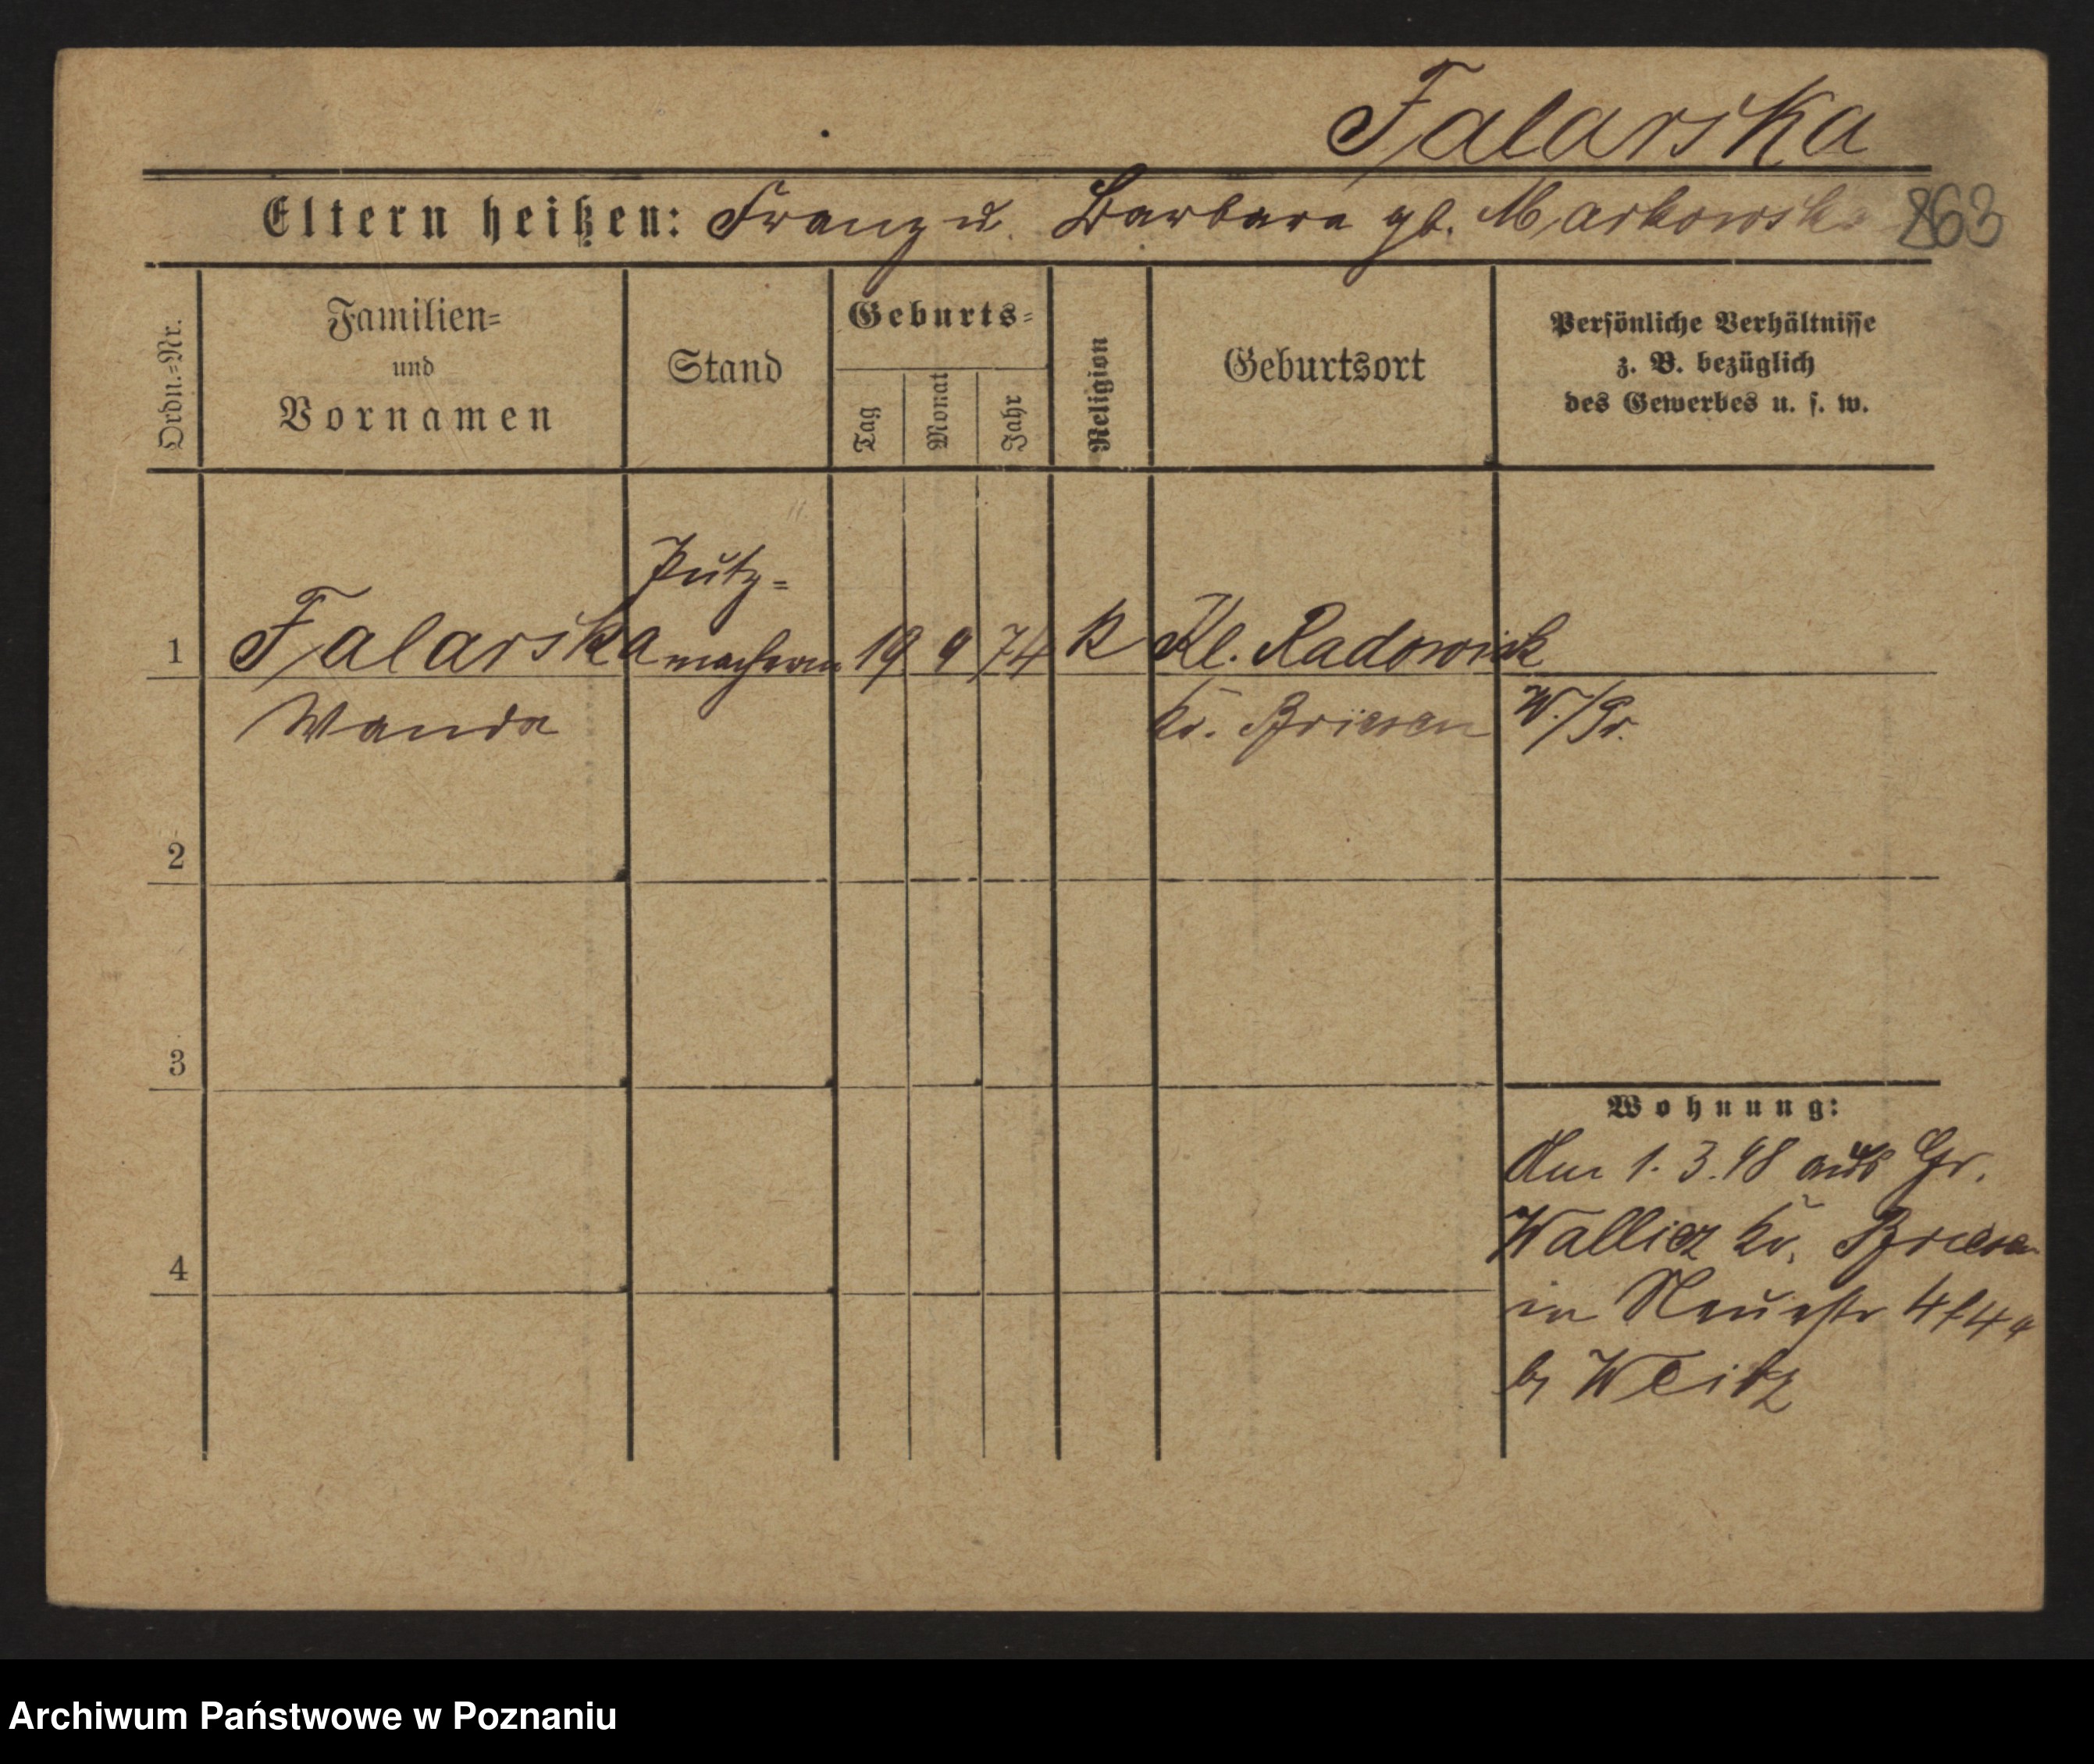 Falarska
Eltern heißen: Franz u. Barbara gb. Markowska
863
Ordn.=Nr.
Familien=
und
Vornamen
Stand
Geburts=
Tag
Monat
Jahr
Religion
Geburtsort
Persönliche Verhältnisse
z. B. bezüglich
des Gewerbes u. s. w.
Putz=
1 Falarska macherin 19 9 74 k Kl. Radowisk
Wanda Kr. Briesen W./Pr.
2
3
Wohnung:
Am 1. 3. 98 aus Gr.
Wallicz Kr. Briesen
4
in Neuestr
b/ Weitz
Archiwum Państwowe w Poznaniu